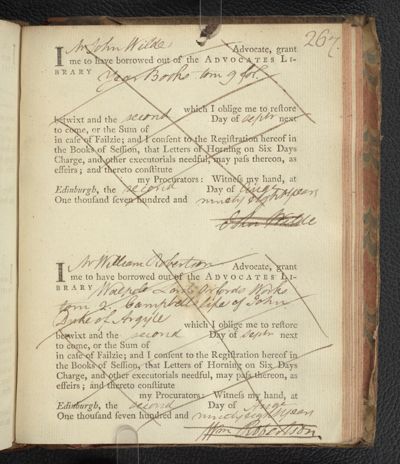 267.
I Mr John Wilde Advocate, grant
me to have borrowed out of the ADVOCATES LI-
BRARY Year Books tom 9 fol.
which I oblige me to restore
betwixt and the second Day of Septr next
to come, or the Sum of
in case of Failzie; and I consent to the Registration hereof in
the Books of Session, that Letters of Horning on Six Days
Charge, and other executorials needful, may pass thereon, as
effeirs; and thereto constitute
my Procurators: Witness my hand, at
Edinburgh, the second Day of Augt
One thousand seven hundred and ninety eight years
John Wilde
I Mr William Robertson Advocate, grant
me to have borrowed out of the ADVOCATES LI-
BRARY Walpole Lord Orfords Works
tom 2. Campbell Life of John
Duke of Argyle
which I oblige me to restore
betwixt and the second Day of Septr next
to come, or the Sum of
in case of Failzie; and I consent to the Registration hereof in
the Books of Session, that Letters of Horning on Six Days
Charge, and other executorials needful, may pass thereon, as
effeirs; and thereto constitute
my Procurators: Witness my hand, at
Edinburgh, the second Day of Augt
One thousand seven hundred and ninety eight years
Wm Robertson